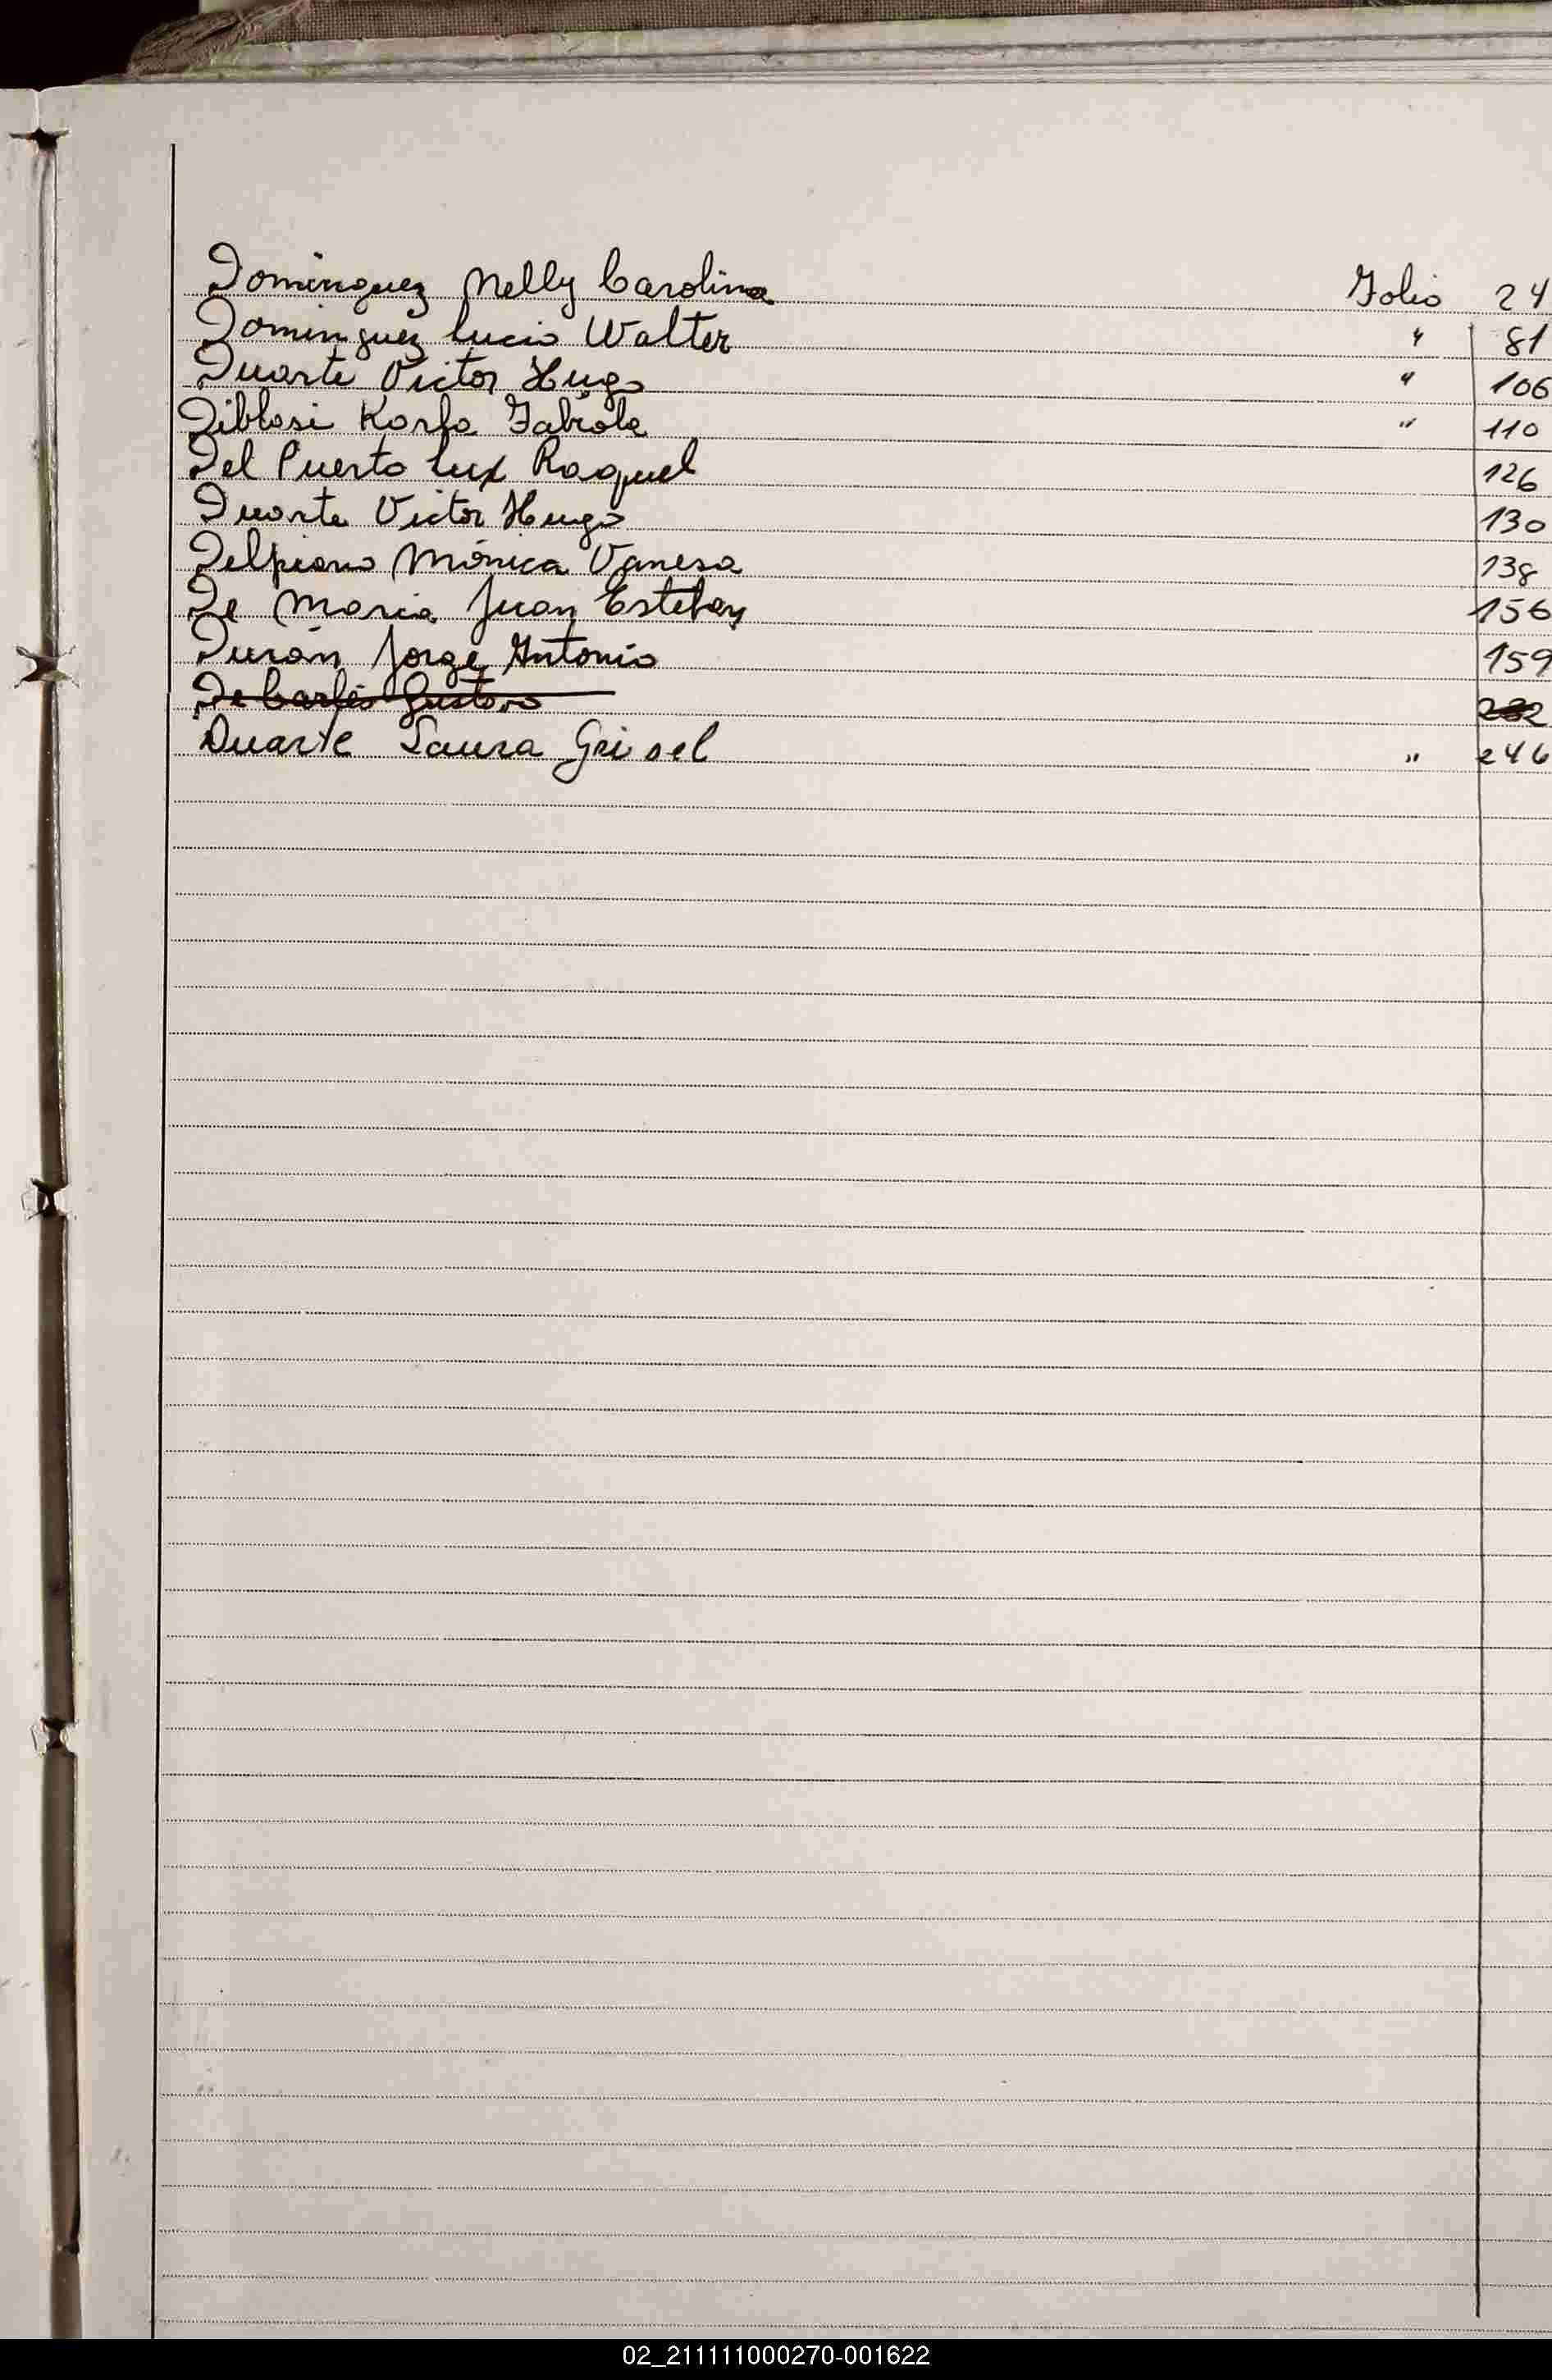 Dominguez Nelly Carolina Folio 24
Dominguez Lucio Walter " 81
Duarte Victor Hugo " 106
Diblasi Karla Fabiola " 110
Del Puerto Luz Raquel 126
Duarte Victor Hugo 130
Delpiano Mónica Vanesa 138
De Maria Juan Esteban 156
Durán Jorge Antonio 159
De Carlés Gustavo 232
Duarte Laura Grisel " 246
02_211111000270-001622